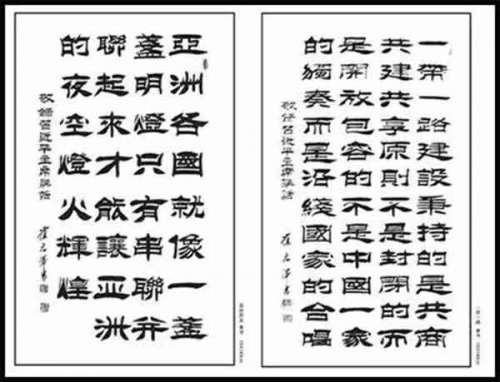 一帶一路建設秉持的是共商
共建共享原則不是封閉的而
是開放包容的不是中國一家
的獨奏而是沿綫國家的合唱
敬錄習近平主席講話
亞洲各國就像一盞
盞明燈只有串聯并
聯起來才能讓亞洲
的夜空燈火輝煌
敬錄習近平主席講話